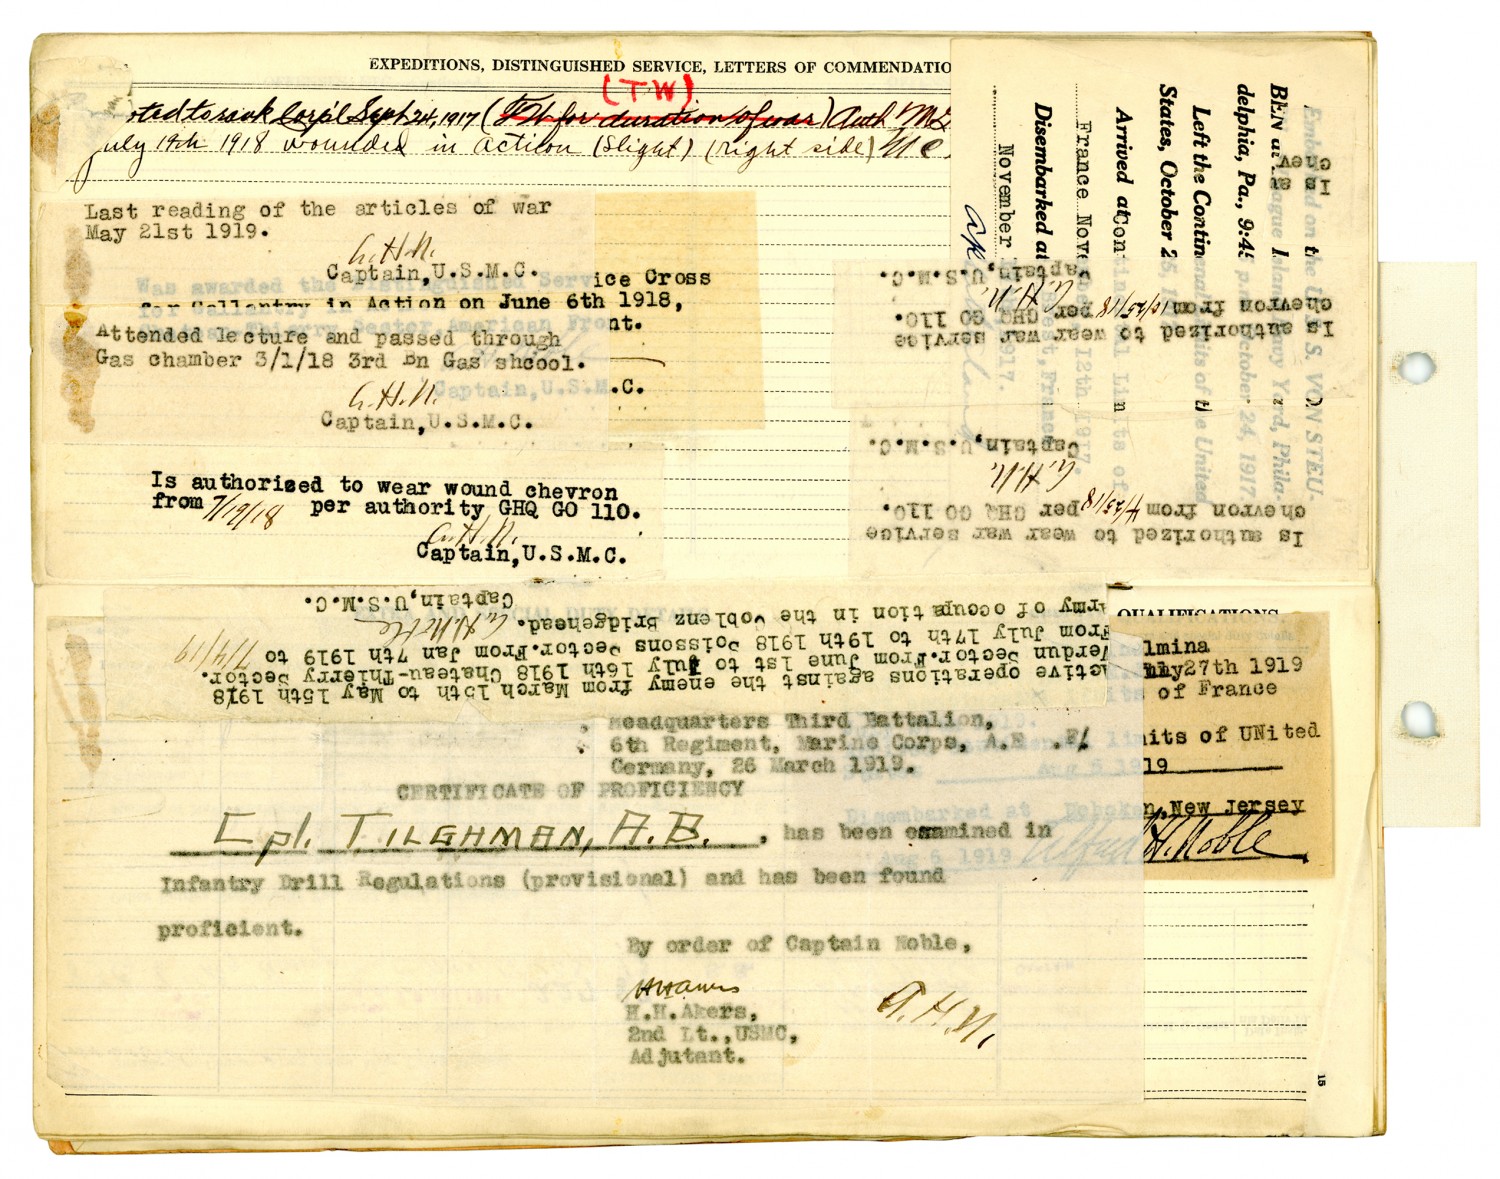 EXPEDITIONS, DISTINGUISHED SERVICE, LETTERS OF COMMENDATIO
(TW)
oted to rank Corp'l Sept 24, 1917 ( for duration of war) Auth
July 19th 1918 wounded in action (slight) (right side)
Last reading of the articles of war
May 21st 1919.
A.H.N.
Captain,U.S.M.C.
Was awarded the Distinguished Service Cross
for Gallantry in Action on June 6th 1918,
Thierry Sector, American Front.
Captain,U.S.M.C.
Attended lecture and passed through
Gas chamber 3/1/18 3rd Bn Gas shcool.
A.H.N.
Captain,U.S.M.C.
Is authorized to wear wound chevron
from 7/19/18 per authority GHQ GO 110.
A.H.N.
Captain,U.S.M.C.
Embarked on the U. S. S. VON STEU-
BEN at League Island Navy Yard, Phila-
delphia, Pa., 9:45 p.m. October 24, 1917.
Left the Continental Limits of the United
States, October 25, 1917.
Arrived at Continental Limits of
France Nov. 12th 1917.
Disembarked at Brest, France
November 1917.
Is
chev
Is authorized to wear war service
chevron from 10/25/18 per GHQ GO 110.
A.H.N.
Captain,U.S.M.C.
Is authorized to wear war service
chevron from 4/25/18 per GHQ GO 110.
A.H.N.
Captain,U.S.M.C.
Active operations against the enemy from March 15th to May 15th 1918
Verdun Sector.From June 1st to July 16th 1918 Chateau-Thierry Sector.
From July 17th to 19th 1918 Soissons Sector.From Jan 7th 1919 to 7/4/19
Army of occupation in the Coblenz Bridgehead.
A.H.Noble
Captain,U.S.M.C.
QUALIFICATIONS
elmina
July 27th 1919
its of France
limits of UNited
Aug 5 1919
Disembarked at Hoboken,New Jersey
Aug 5 1919 Alfred H. Noble
Headquarters Third Battalion,
6th Regiment, Marine Corps, A.E .F/
Germany, 26 March 1919.
CERTIFICATE OF PROFICIENCY
Cpl. TILGHMAN, A.B. , has been examined in
Infantry Drill Regulations (provisional) and has been found
proficient.
By order of Captain Noble,
HHAkers
H.H.Akers,
2nd Lt.,USMC,
Adjutant.
A.H.N.
15